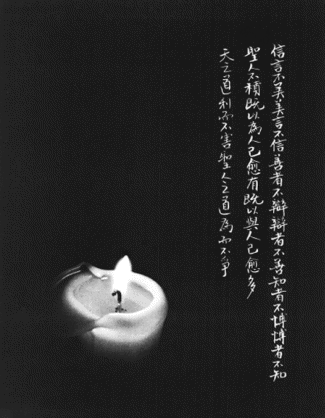 信言不美美言不信善者不辯辯者不善知者不博博者不知
聖人不積既以為人己愈有既以與人己愈多
天之道利而不害聖人之道為而不爭